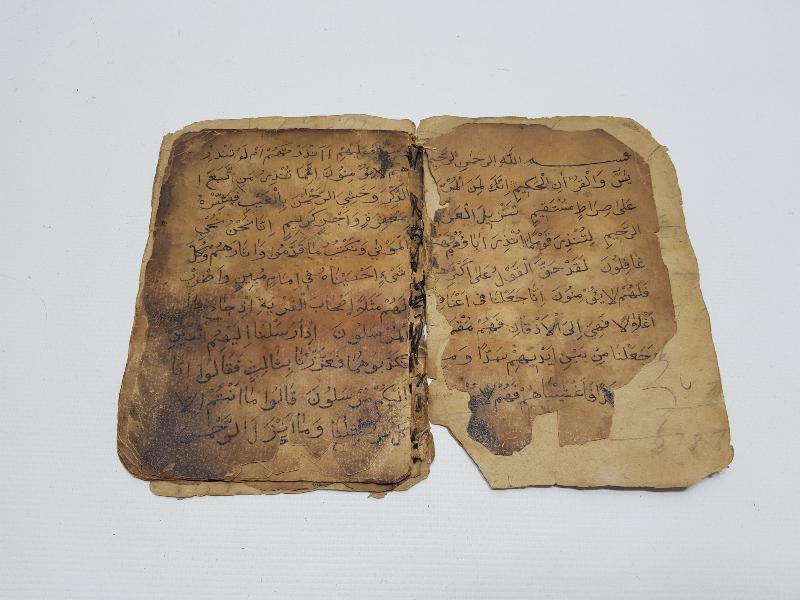 بسم الله الرحمن الرحيم
يس والقرآن الحكيم انك لمن المر
على صراط مستقيم تنزيل العز
الرحيم لتنذر قوما ما انذر اباؤهم فهم
غافلون لقد حق القول على اكثر
فهم لا يؤمنون انا جعلنا في اعنا
اغلالا فهى الى الاذقان فهم مقم
وجعلنا من بين ايديهم سدا و من
فاغشيناهم فهم لا
سواء عليهم أانذرتهم ام لم تنذر
هم لا يؤمنون انما تنذر من تبع ا
الذكر وخشى الرحمن بالغيب فبشره
بمغفرة واجر كريم انا نحن نحي
الموتى ونكتب ما قدموا واثارهم وكل
شيء احصيناه في امام مبين واضرب
لهم مثلا اصحاب القرية اذ جاءها
المرسلون اذ ارسلنا اليهم اثنين
فكذبوهما فعززنا بثالث فقالوا انا
اليكم مرسلون قالوا ما انتم الا
مثلنا وما انزل الرحمن